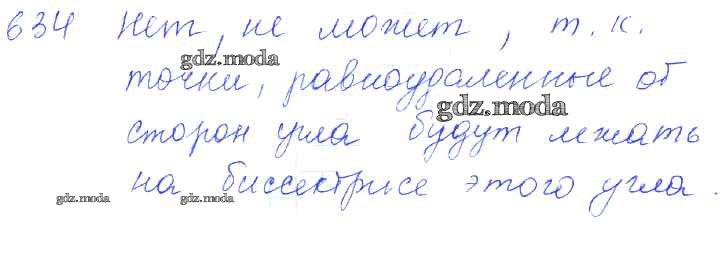 634 Нет, не может, т.к.
gdz.moda
точки, равноудаленные от
gdz.moda
сторон угла будут лежать
на биссектрисе этого угла.
gdz.moda gdz.moda